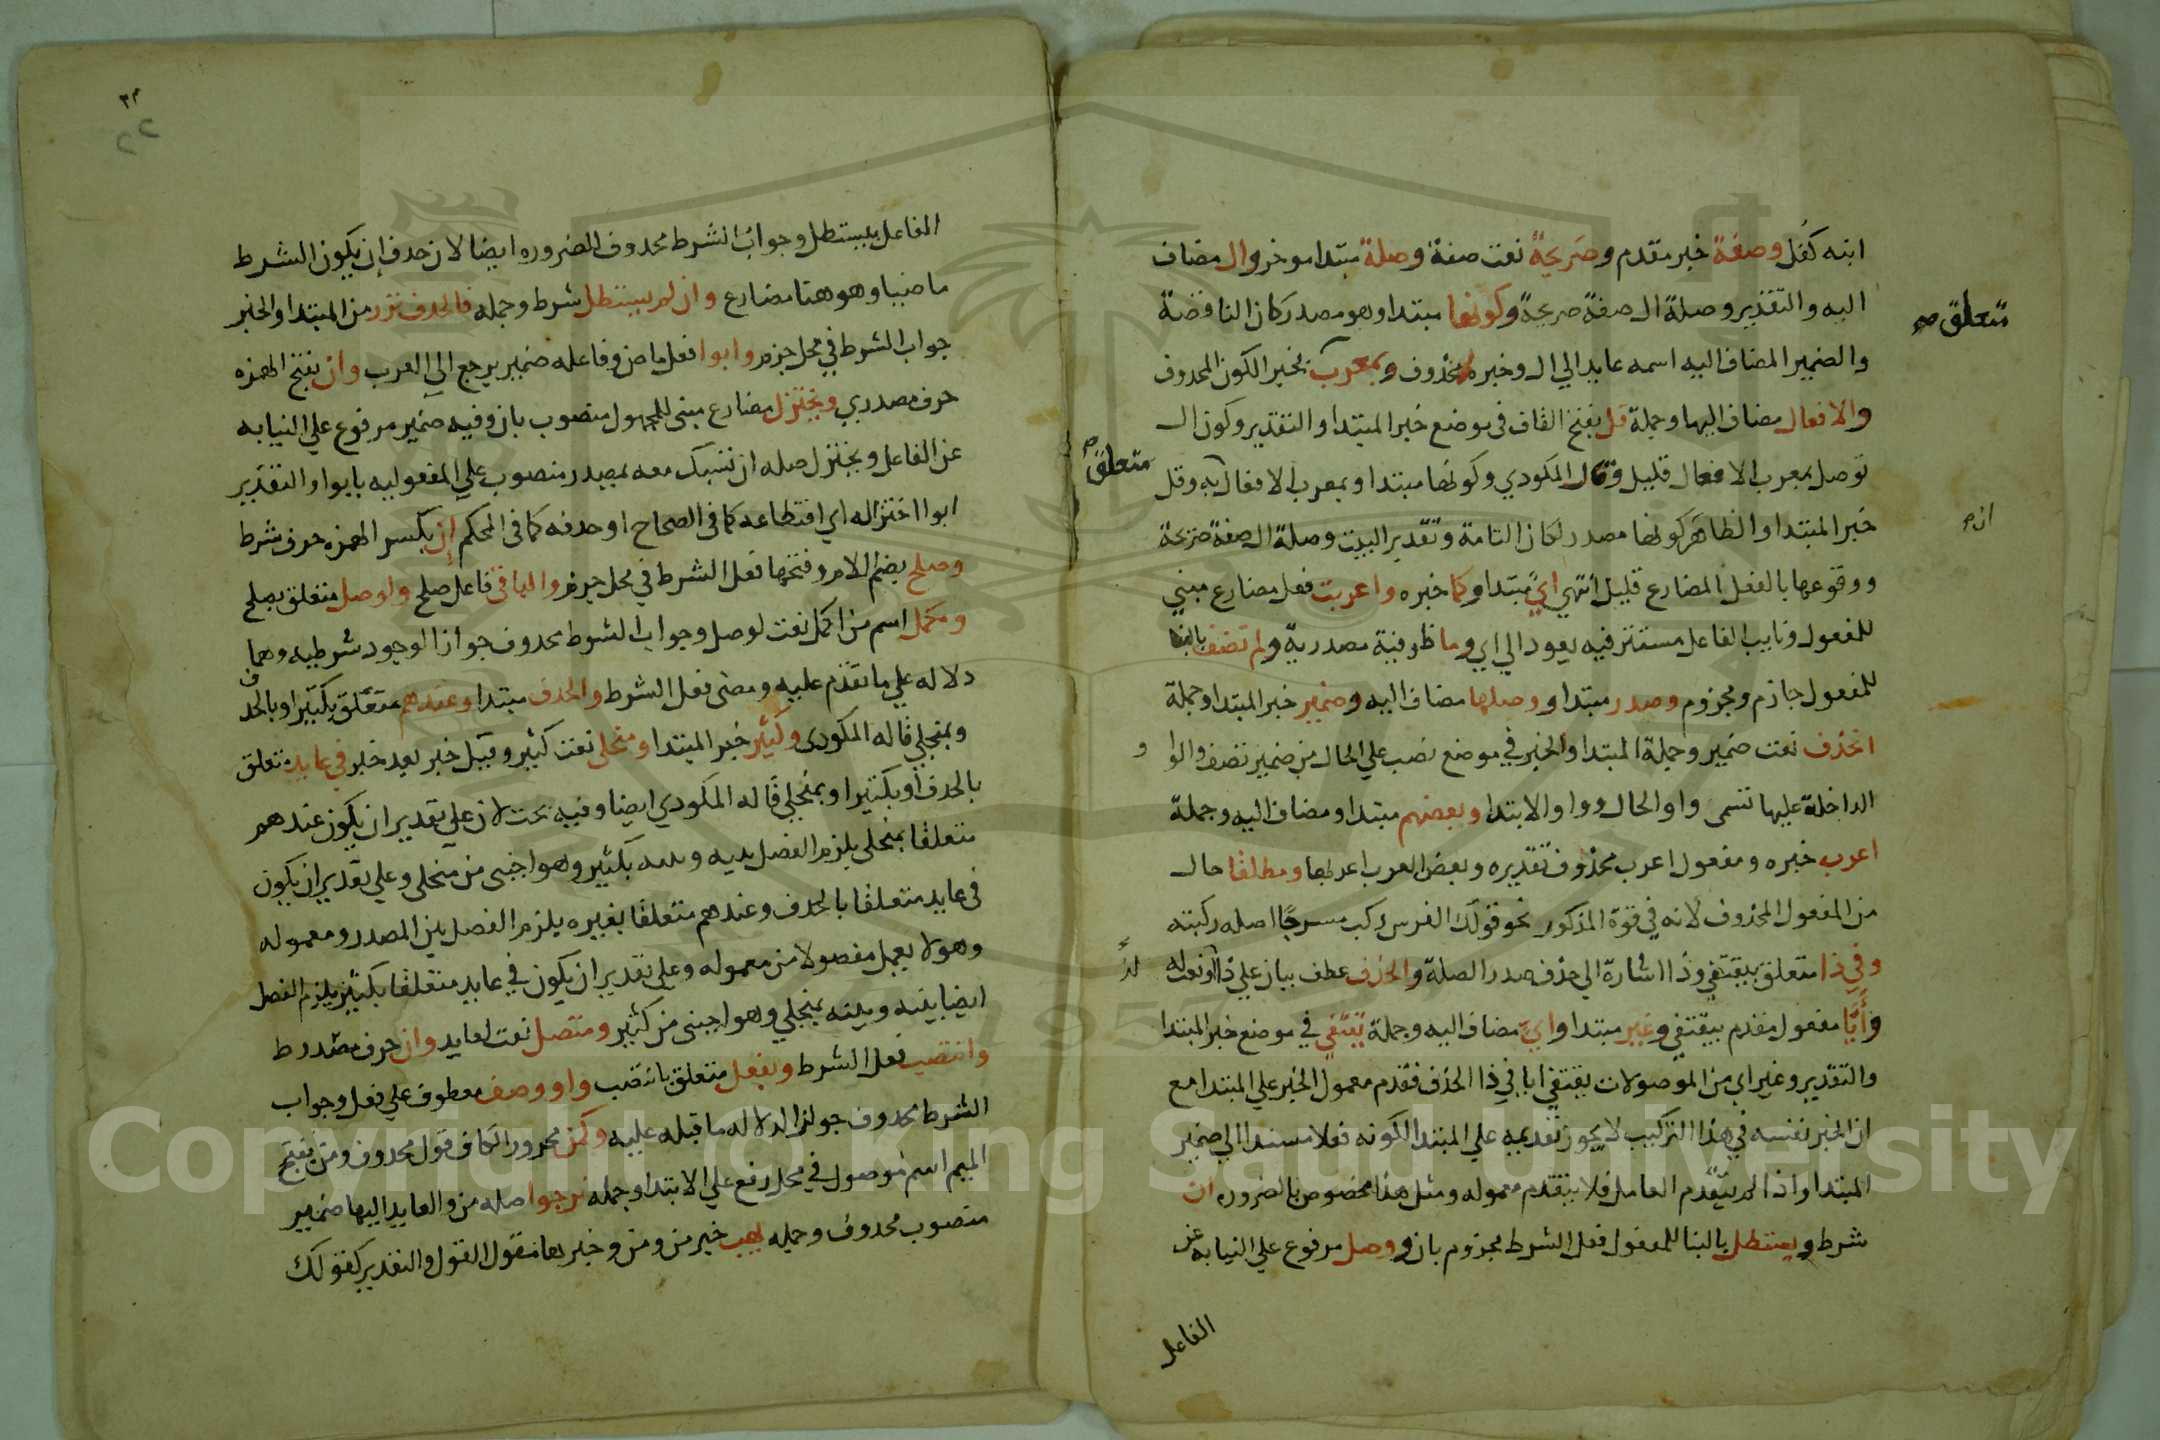 ابنه كفل وصفة خبر مقدم وصريحة نعت صفة وصلة مبتدا موخر وال مضاف
اليه والتقدير وصلة ال صفة صريحة وكونها مبتدا وهو مصدر كان الناقضة
والضمير المضاف اليه اسمه عايد الي ال وخبره محذوف وبمعرب بخبر الكون المحذوف
متعلق صح
والافعال مضاف اليها وجملة قل بفتح القاف في موضع خبر المبتدا والتقدير وكون ال
توصل بمعرب الافعال قليل وقال المكودي وكونها مبتدا وبمعرب الافعال به وقل
متعلق صح
خبر المبتدا والظاهر كونها مصدر لكان التامة وتقدير البيت وصلة ال صفة صريحة
ووقوعها بالفعل المضارع قليل انتهي اي مبتدا وكما خبره واعربت فعل مضارع مبني
للمفعول ونايب الفاعل مستتر فيه يعود الي اي وما ظرفية مصدرية ولم تضف بالبنا
للمفعول جازم ومجزوم وصدر مبتدا ووصلها مضاف اليه وضمير خبر المبتدا وجملة
انحذف نعت ضمير وجملة المبتدا والخبر في موضع نصب علي الحال من ضمير تضف والوا
و
الداخلة عليها تسمى واو الحال وواو الابتدا وبعضهم مبتدا ومضاف اليه وجملة
اعرب خبره ومفعول اعرب محذوف تقديره وبعض العرب اعربها ومطلقا حال
من المفعول المحذوف لانه في قوة المذكور نحو قولك الفرس ركب مسرجا اصله ركبته
وفي ذا متعلق بيقتفي وذا اشارة الي حذف صدر الصلة والحذف عطف بيان علي ذا او نعت له
وأيا مفعول مقدم بيقتفي وغير مبتدا واي مضاف اليه وجملة يقتفي في موضع خبر المبتدا
والتقدير وغير اي من الموصولات يقتفي ايا في ذا الحذف فقدم معمول الخبر علي المبتدا مع
ان الخبر نفسه في هذا التركيب لا يجوز تقديمه علي المبتدا لكونه فعلا مسندا الي ضمير
المبتدا واذا لم يتقدم العامل فلا يتقدم معموله ومثل هذا مخصوص بالضروره ان
شرط ويستطل بالبنا للمفعول فعل الشرط مجزوم بان ووصل مرفوع علي النيابه عن
الفاعل
الفاعل بيستطل وجواب الشرط محدوف للضروره ايضا لان حدف ان يكون الشرط
ماضيا وهو هنا مضارع وان لم يستطل شرط وجمله فالحدف نزر من المبتدا والخبر
جواب الشرط في محل جزم وابوا فعل ماض وفاعله ضمير يرجع الي العرب وان بفتح الهمزه
حرف مصدري ويختزل مضارع مبني للمجهول منصوب بان وفيه ضمير مرفوع علي النيابه
عن الفاعل ويختزل صله ان تسبك معه بمصدر منصوب علي المفعوليه بابوا والتقدير
ابوا اختزاله اي اقتطاعه كما في الصحاح او حدفه كما في المحكم ان بكسر الهمزه حرف شرط
وصلح بضم اللام وفتحها فعل الشرط في محل جزم والباقي فاعل صلح ولوصل متعلق بصلح
ومكمل اسم من اكمل نعت لوصل وجواب الشرط محدوف جوازا لوجود شرطيه وهما
دلاله علي ما تقدم عليه ومضى فعل الشرط والحدف مبتدا وعندهم متعلق بكثير او بالحدف
وبمنجلي قاله المكودي وكثير خبر المبتدا ومنجلي نعت كثير وقيل خبر بعد خبر في عايد متعلق
بالحدف او بكثير او بمنجلي قاله المكودي ايضا وفيه بحث لان علي تقدير ان يكون عندهم
متعلقا بمنجلي يلزم الفصل بينه وبينه بكثير وهو اجنبي من منجلي وعلي تقدير ان يكون
في عايد متعلقا بالحدف وعندهم متعلقا بغيره يلزم الفصل بين المصدر ومعموله
وهو لا يعمل مفصولا من معموله وعلي تقدير ان يكون في عايد متعلقا بكثير يلزم الفصل
ايضا بينه وبينه بمنجلي وهو اجنبي من كثير ومتصل نعت لعايد وان حرف شرط
وانتصب فعل الشرط وبفعل متعلق بانتصب واو وصف معطوف علي فعل وجواب
الشرط محدوف جوازا لدلاله ما قبله عليه وكمن مجرور الكاف قول محدوف ومن بفتح
الميم اسم موصول في محل رفع علي الابتدا وجمله نرجوا صله من والعايد اليها ضمير
منصوب محدوف وجمله يهب خبر من ومن وخبرها مقول القول والتقدير كقولك
Copyright © King Saud University
1957